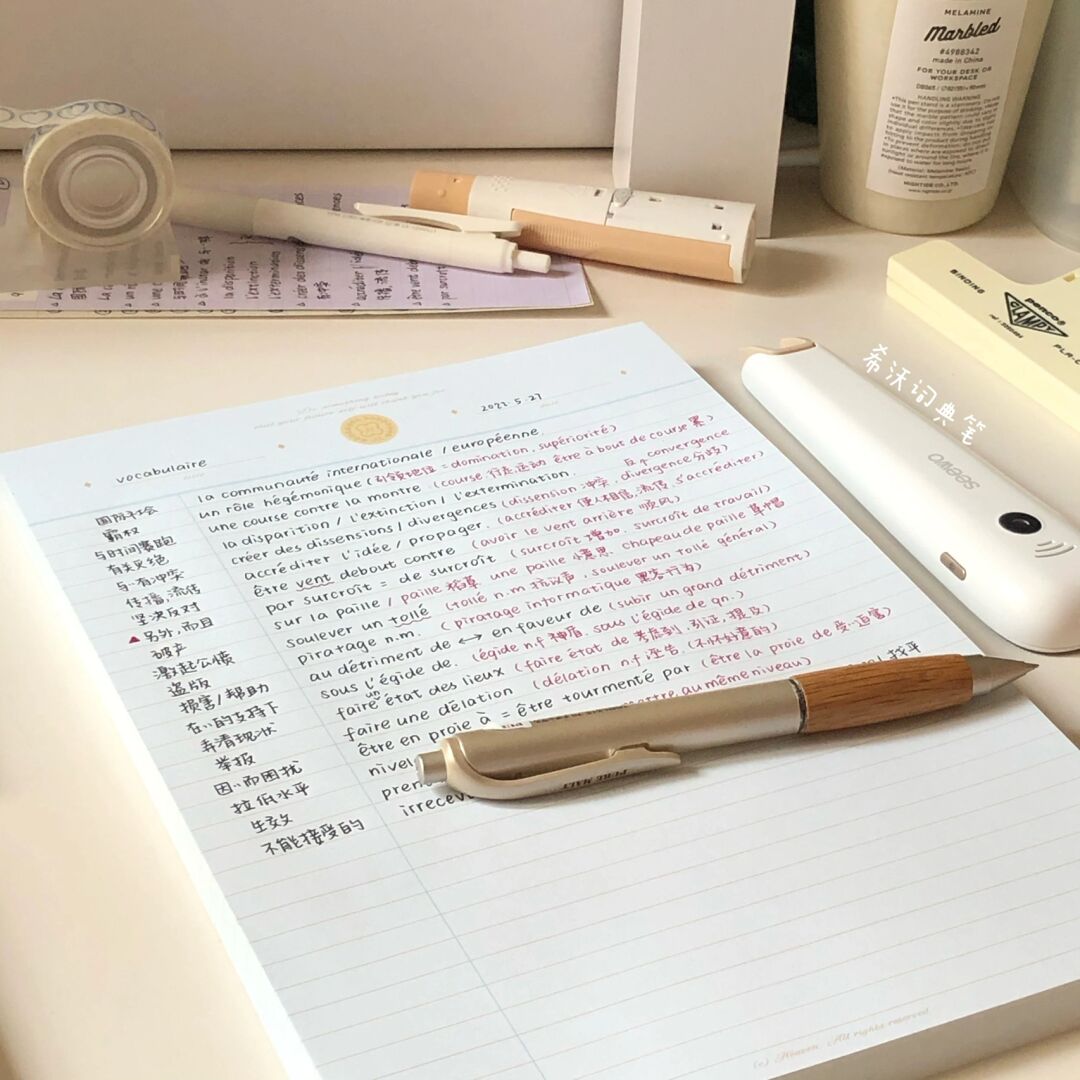 MELAMINE
Marbled
#4988342
made in China
FOR YOUR DESK OR
WORKSPACE
HANDLING WARNING
HIGHTIDE CO., LTD.
BINDING
penco
CLAMPY
希沃词典笔
seewo
2022.5.27
vocabulaire
la communauté internationale / européenne
国际社会
un rôle hégémonique (引领地位 = domination, supériorité)
霸权
une course contre la montre (course 行走, 运动 être à bout de course 累)
与时间赛跑
la disparition / l'extinction / l'extermination.
有关灭绝
créer des dissensions / divergences (dissension 冲突, divergence 分歧) 反 convergence
与··有冲突
accréditer l'idée / propager. (accréditer 使人相信, 流传 s'accréditer)
传播, 流传
être vent debout contre (avoir le vent arrière 顺风)
坚决反对
par surcroît = de surcroît (surcroît 增加. surcroît de travail)
▲ 另外, 而且
sur la paille / paille 稻草 une paille 小意思 chapeau de paille 草帽
破产
soulever un tollé (tollé n.m 抗议声, soulever un tollé général)
激起公愤
piratage n.m. (piratage informatique 黑客行为)
盗版
au détriment de ↔ en faveur de (subir un grand détriment)
损害 / 帮助
sous l'égide de. (égide n.f 神盾. sous l'égide de qn.)
在··的支持下
faire un état des lieux (faire état de 考虑到, 引证, 提及)
弄清现状
faire une délation (délation n.f 诬告 (不怀好意的)
举报
être en proie à = être tourmenté par (être la proie de 受··迫害)
因··而困扰
mettre au même niveau)
拉低水平
找平
生效
不能接受的
PURE MALT
(c) Heaven. All rights reserved